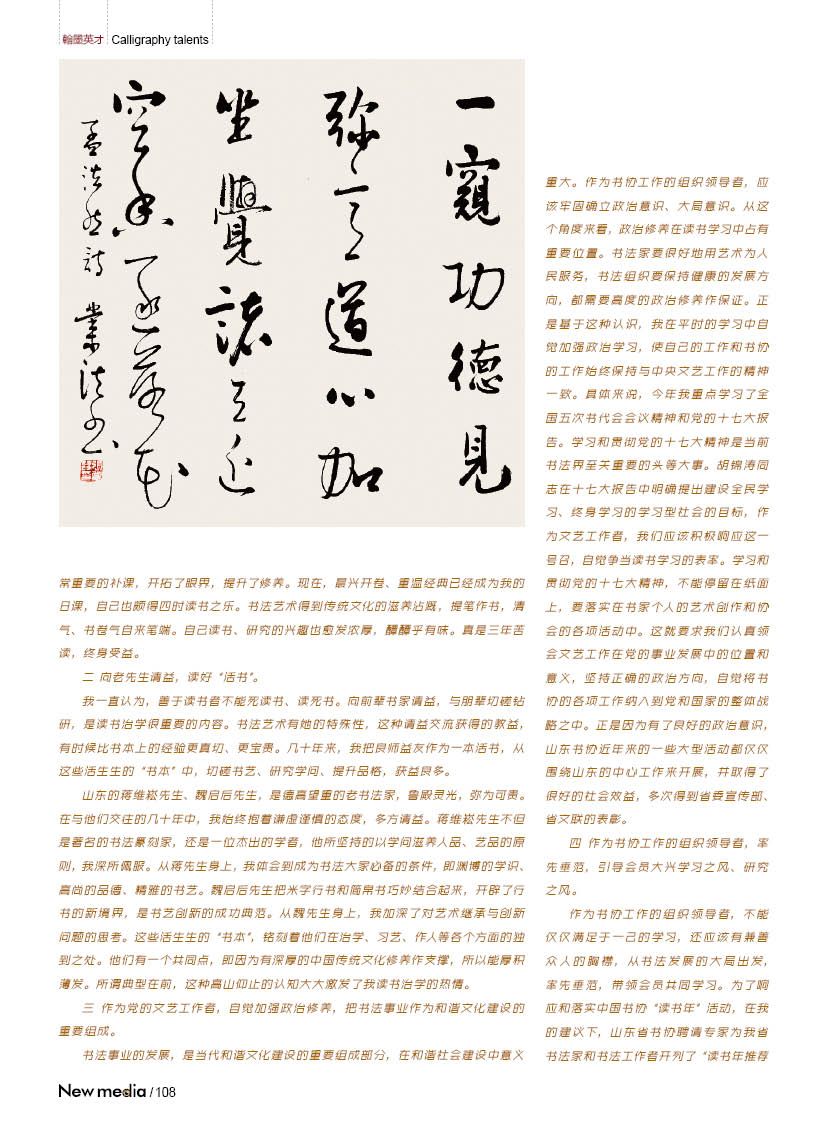 翰墨英才 Calligraphy talents
一窺功德見
弥益道心加
坐覺諸天近
空香逐落花
孟浩然詩 業法書
常重要的补课，开拓了眼界，提升了修养。现在，晨兴开卷、重温经典已经成为我的
日课，自己也颇得四时读书之乐。书法艺术得到传统文化的滋养沾溉，提笔作书，清
气、书卷气自来笔端。自己读书、研究的兴趣也愈发浓厚，醰醰乎有味。真是三年苦
读，终身受益。
二 向老先生请益，读好“活书”。
我一直认为，善于读书者不能死读书、读死书。向前辈书家请益，与朋辈切磋钻
研，是读书治学很重要的内容。书法艺术有她的特殊性，这种请益交流获得的教益，
有时候比书本上的经验更真切、更宝贵。几十年来，我把良师益友作为一本活书，从
这些活生生的“书本”中，切磋书艺、研究学问、提升品格，获益良多。
山东的蒋维崧先生、魏启后先生，是德高望重的老书法家，鲁殿灵光，弥为可贵。
在与他们交往的几十年中，我始终抱着谦虚谨慎的态度，多方请益。蒋维崧先生不但
是著名的书法篆刻家，还是一位杰出的学者，他所坚持的以学问滋养人品、艺品的原
则，我深所佩服。从蒋先生身上，我体会到成为书法大家必备的条件，即渊博的学识、
高尚的品德、精雅的书艺。魏启后先生把米字行书和简帛书巧妙结合起来，开辟了行
书的新境界，是书艺创新的成功典范。从魏先生身上，我加深了对艺术继承与创新
问题的思考。这些活生生的“书本”，铭刻着他们在治学、习艺、作人等各个方面的独
到之处。他们有一个共同点，即因为有深厚的中国传统文化修养作支撑，所以能厚积
薄发。所谓典型在前，这种高山仰止的认知大大激发了我读书治学的热情。
三 作为党的文艺工作者，自觉加强政治修养，把书法事业作为和谐文化建设的
重要组成。
书法事业的发展，是当代和谐文化建设的重要组成部分，在和谐社会建设中意义
重大。作为书协工作的组织领导者，应
该牢固确立政治意识、大局意识。从这
个角度来看，政治修养在读书学习中占有
重要位置。书法家要很好地用艺术为人
民服务，书法组织要保持健康的发展方
向，都需要高度的政治修养作保证。正
是基于这种认识，我在平时的学习中自
觉加强政治学习，使自己的工作和书协
的工作始终保持与中央文艺工作的精神
一致。具体来说，今年我重点学习了全
国五次书代会会议精神和党的十七大报
告。学习和贯彻党的十七大精神是当前
书法界至关重要的头等大事。胡锦涛同
志在十七大报告中明确提出建设全民学
习、终身学习的学习型社会的目标，作
为文艺工作者，我们应该积极响应这一
号召，自觉争当读书学习的表率。学习和
贯彻党的十七大精神，不能停留在纸面
上，要落实在书家个人的艺术创作和协
会的各项活动中。这就要求我们认真领
会文艺工作在党的事业发展中的位置和
意义，坚持正确的政治方向，自觉将书
协的各项工作纳入到党和国家的整体战
略之中。正是因为有了良好的政治意识，
山东书协近年来的一些大型活动都仅仅
围绕山东的中心工作来开展，并取得了
很好的社会效益，多次得到省委宣传部、
省文联的表彰。
四 作为书协工作的组织领导者，率
先垂范，引导会员大兴学习之风、研究
之风。
作为书协工作的组织领导者，不能
仅仅满足于一己的学习，还应该有兼善
众人的胸襟，从书法发展的大局出发，
率先垂范，带领会员共同学习。为了响
应和落实中国书协“读书年”活动，在我
的建议下，山东省书协聘请专家为我省
书法家和书法工作者开列了“读书年推荐
New media / 108